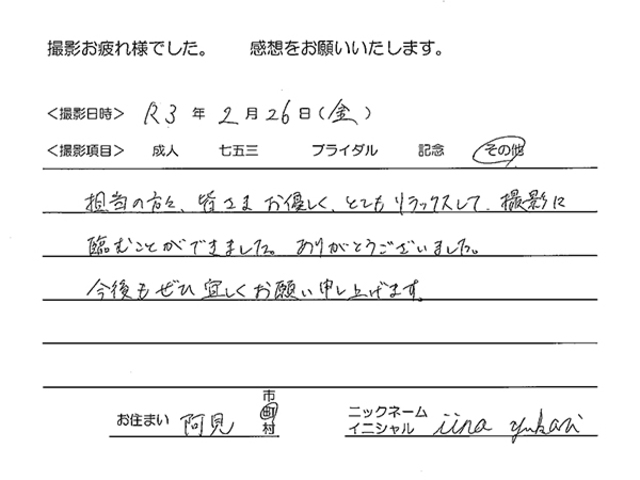 撮影お疲れ様でした。 感想をお願いいたします。
<撮影日時> R3 年 2 月 26 日(金)
<撮影項目> 成人 七五三 ブライダル 記念 その他
担当の方々、皆さま お優しく、とてもリラックスして、撮影に
臨むことができました。ありがとうございました。
今後もぜひ宜しくお願い申し上げます。
お住まい 阿見 市町村
ニックネーム
イニシャル iina yukari